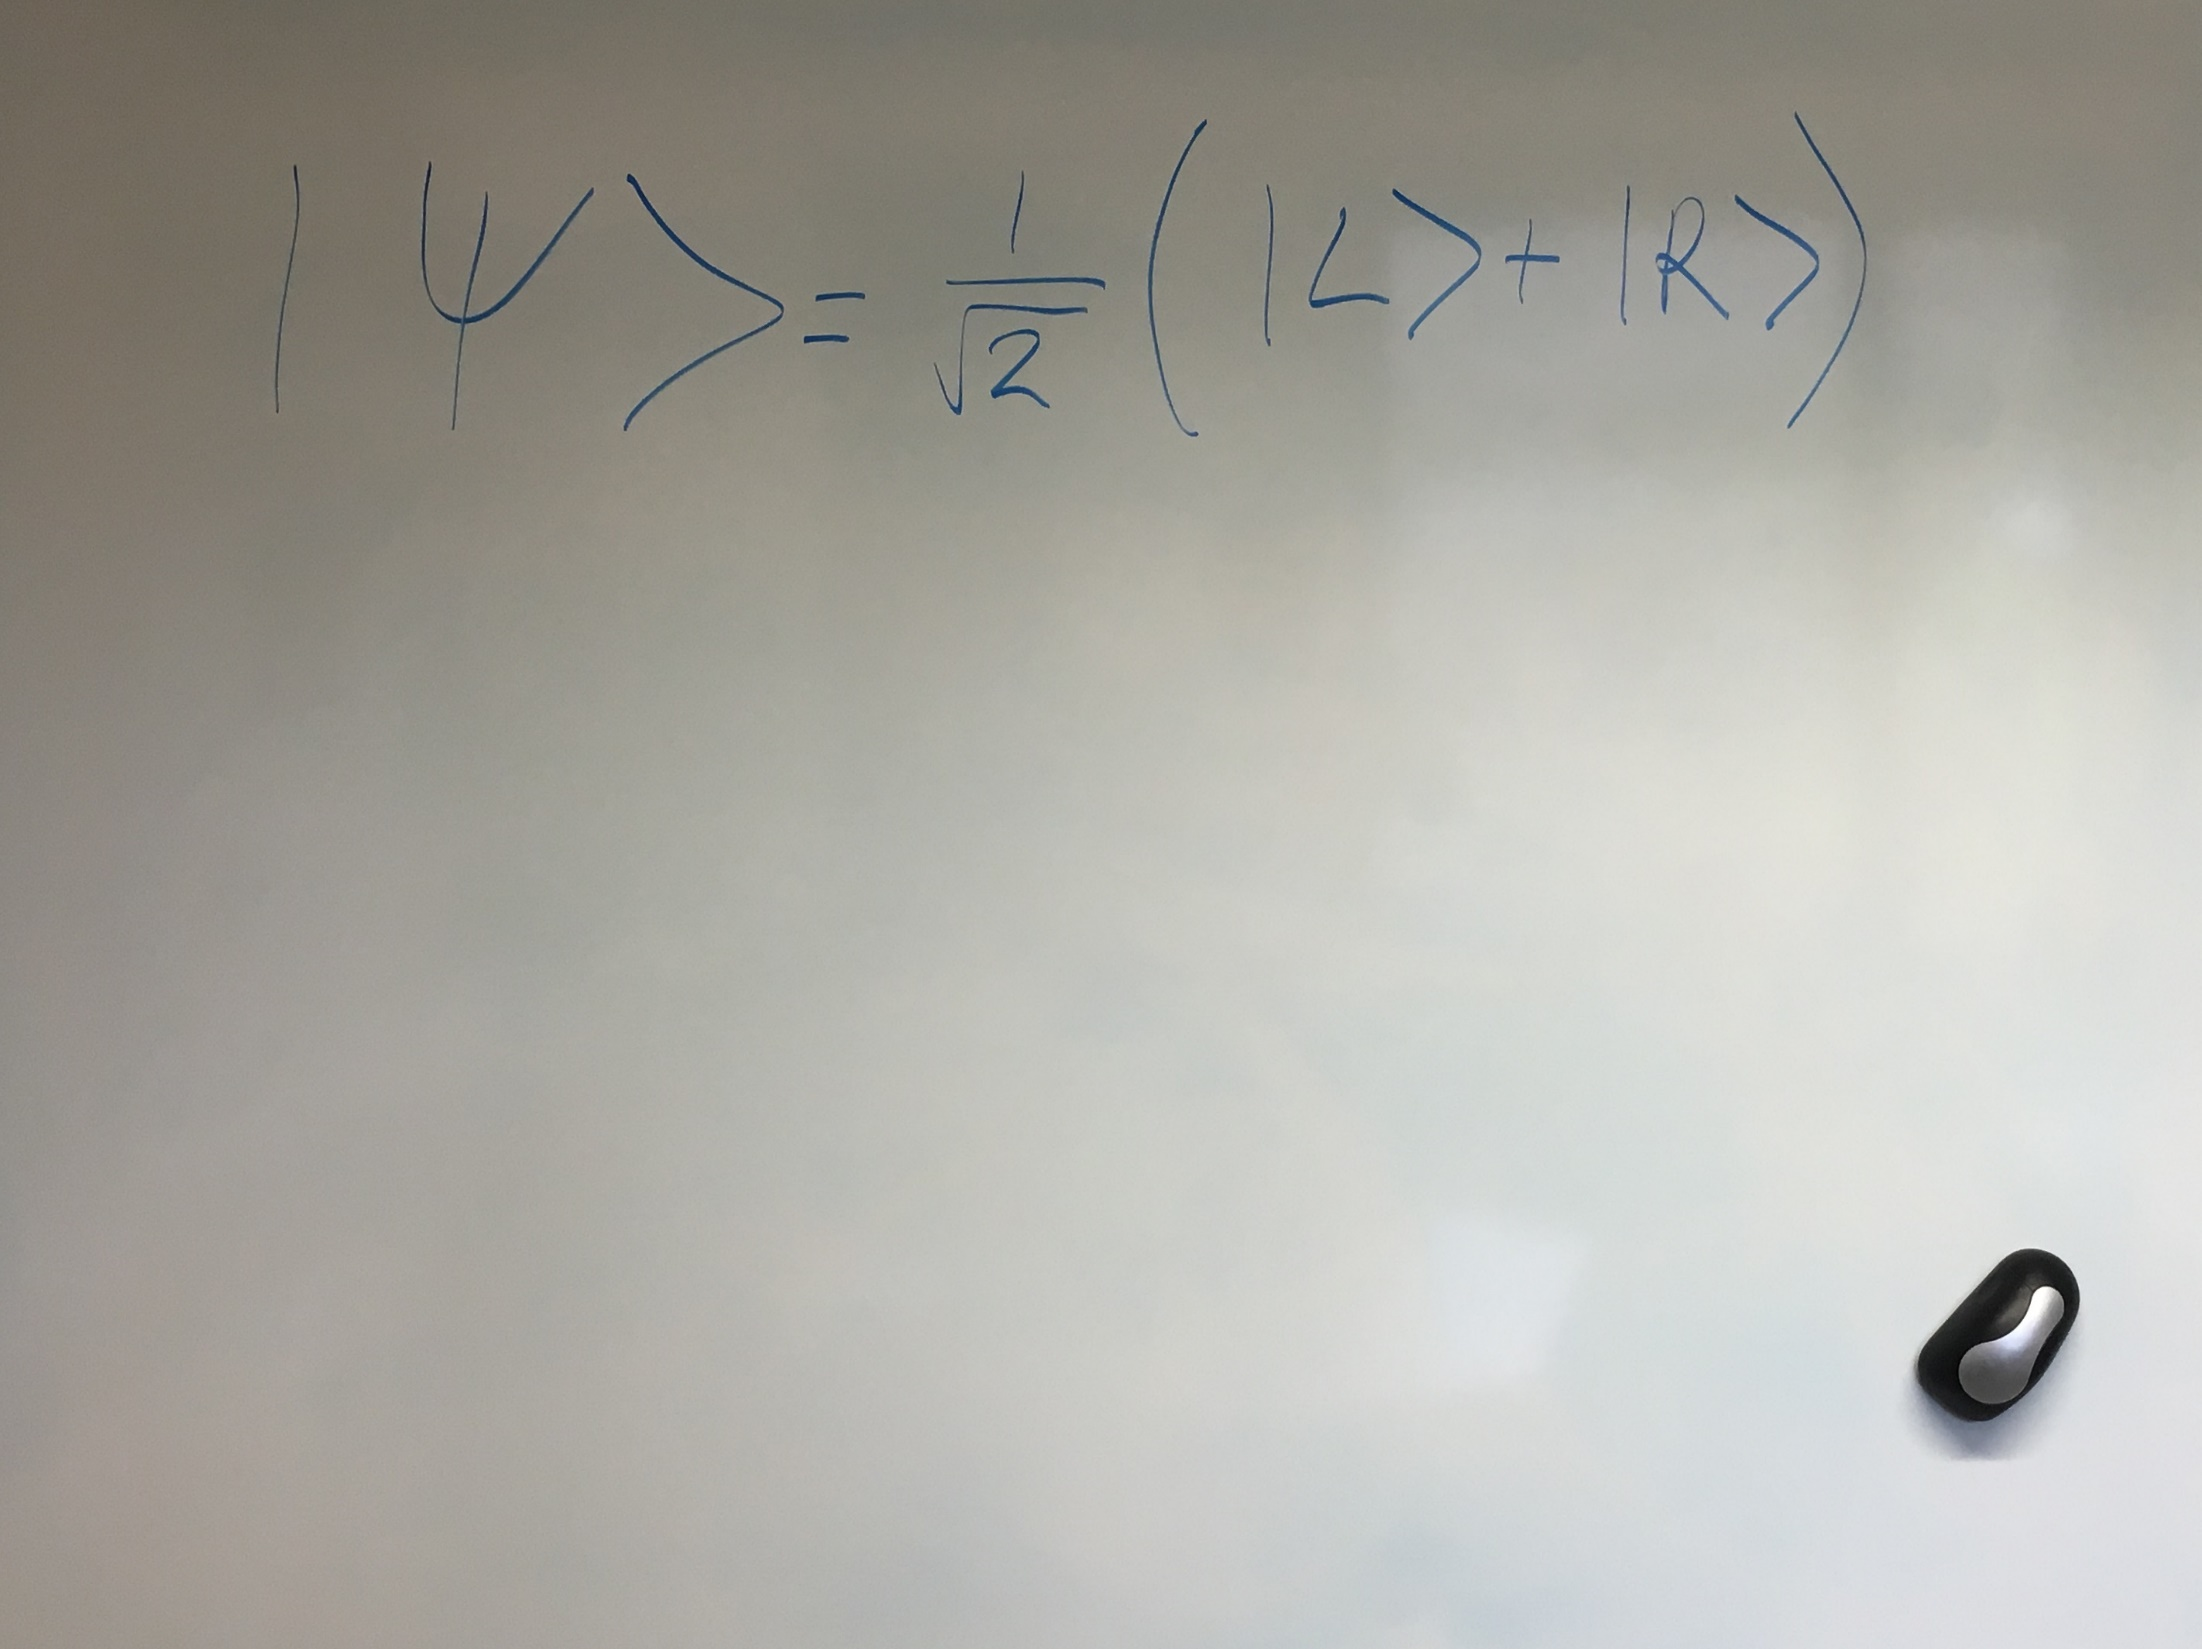 |ψ> = 1/√2 (|L> + |R>)